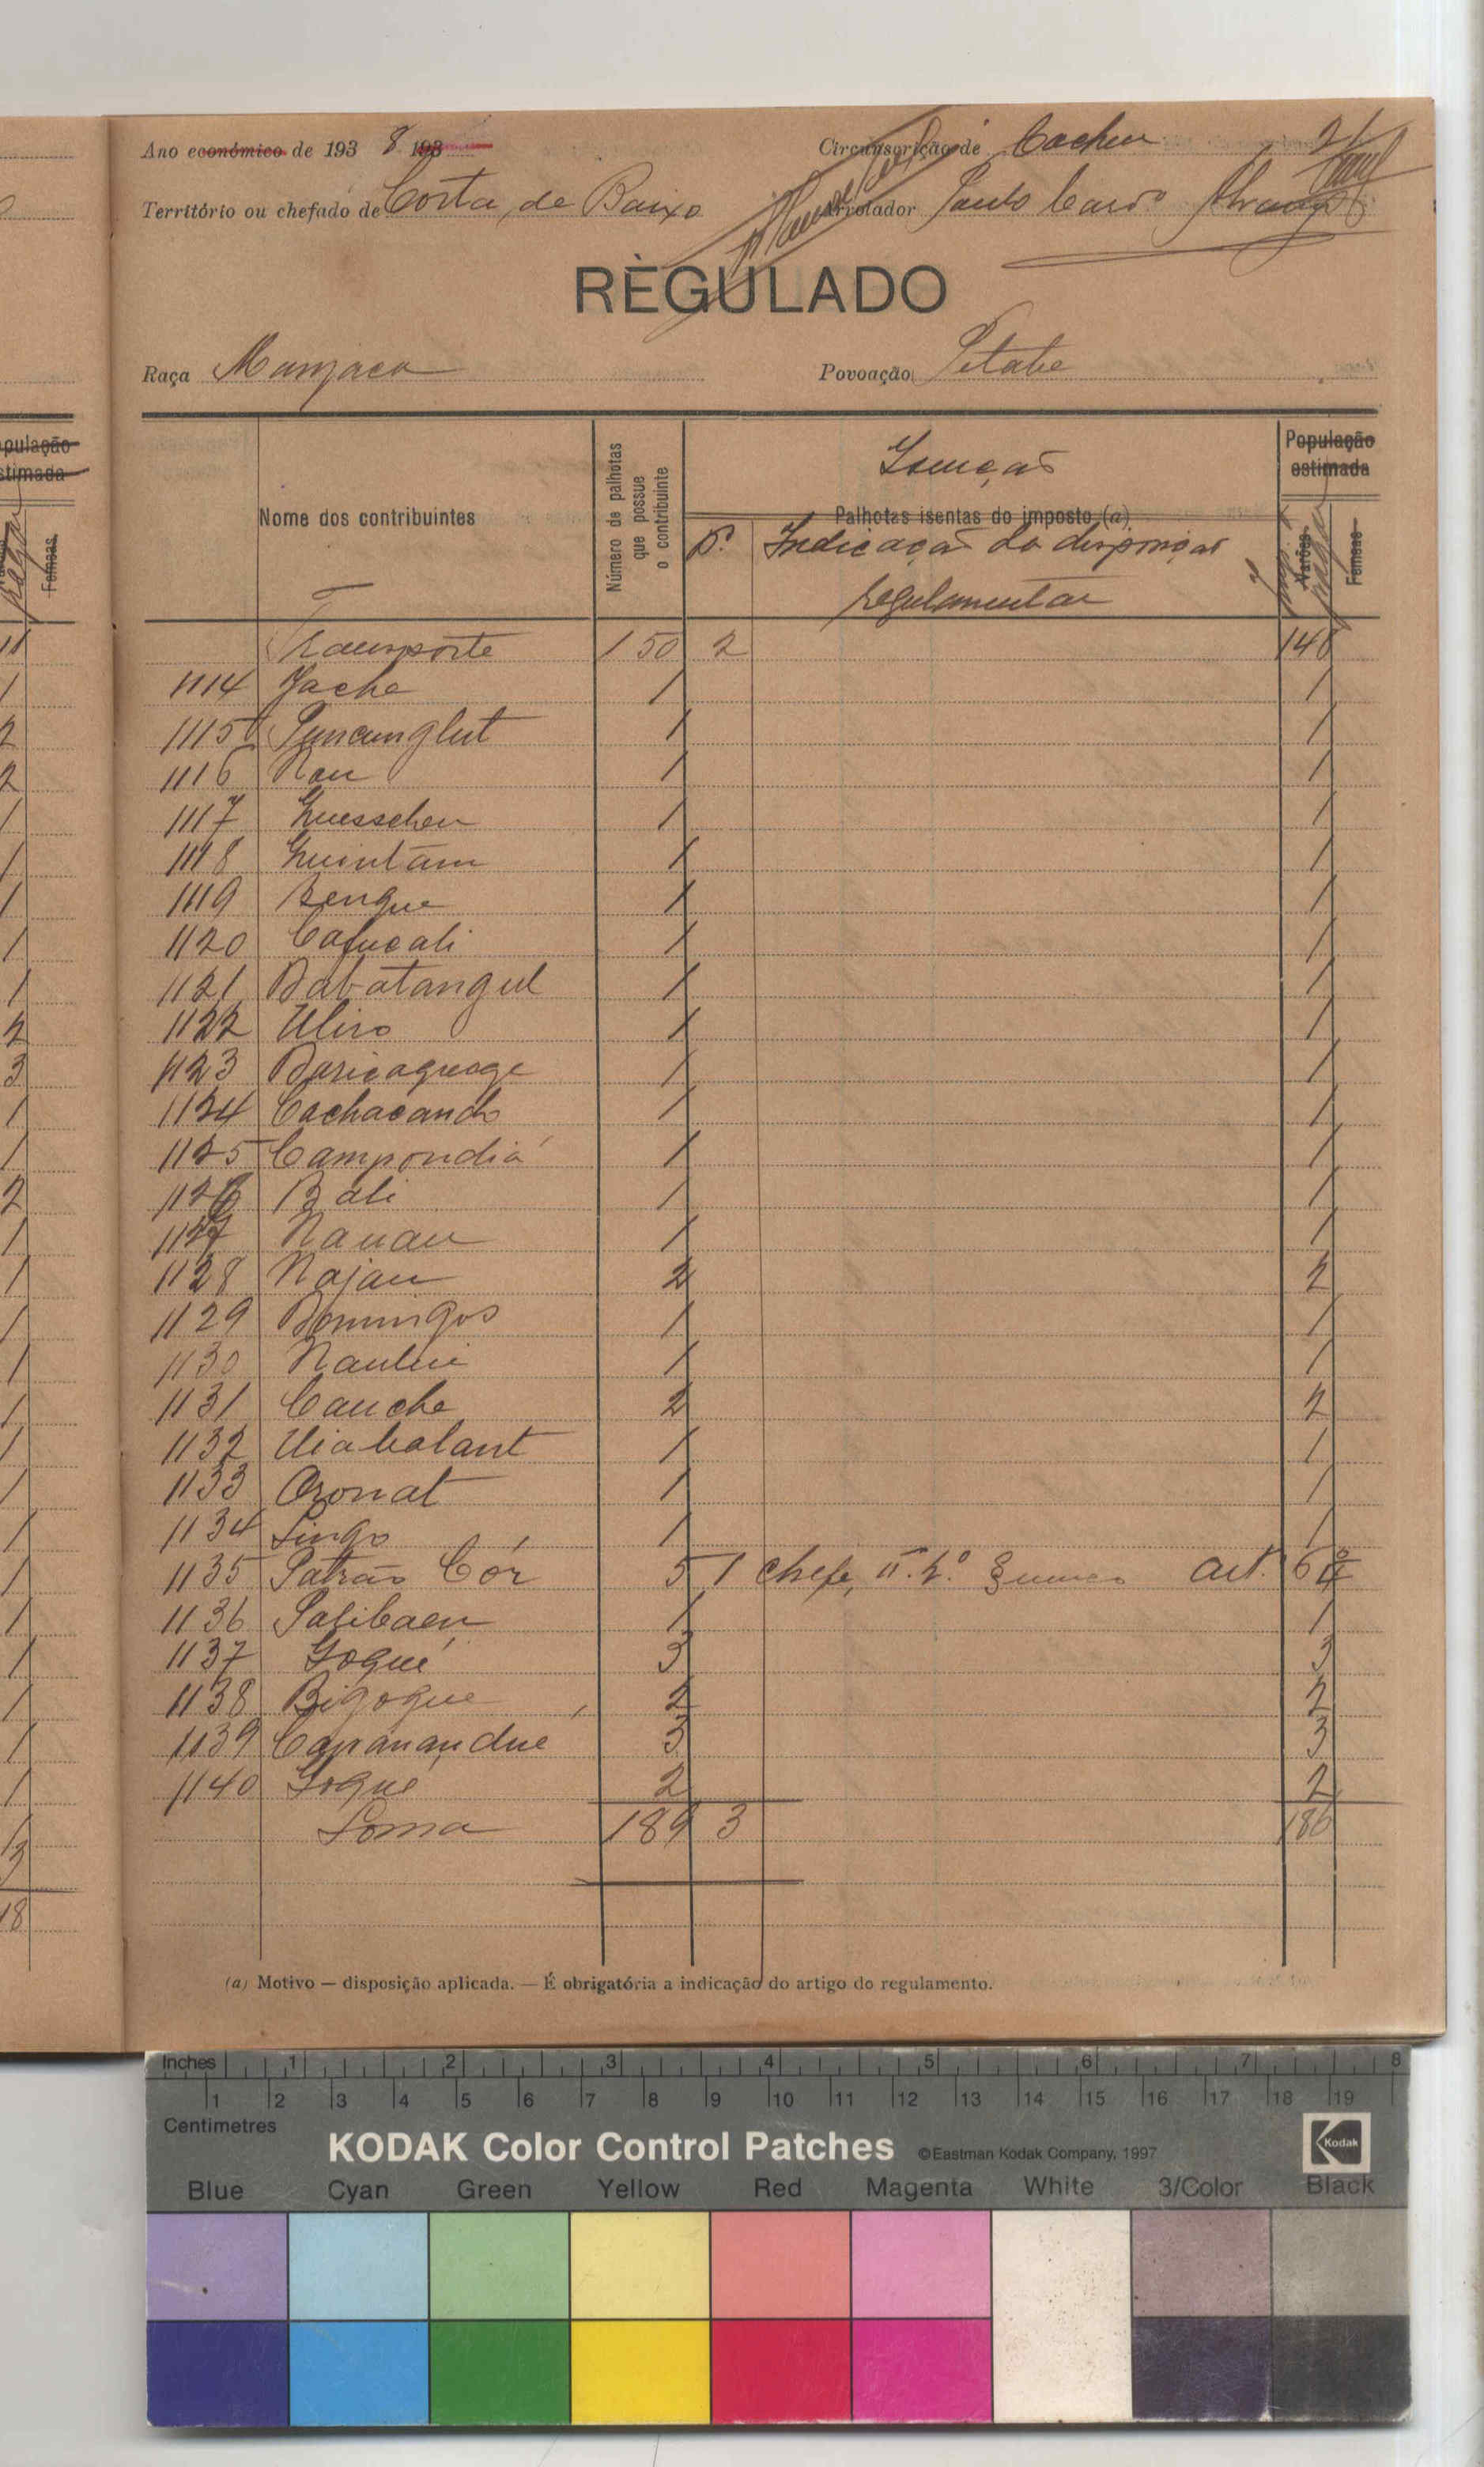 Ano económico de 193 8 193
Circunscrição de Cacheu 21
Território ou chefado de Costa de Baixo
Arrolador Paulo
RÈGULADO
Raça Manjaca
Povoação Petabe
pulação
stimada
Femeas
Nome dos contribuintes
Número de palhotas que possue o contribuinte
Isenção
Palhotas isentas do imposto (a)
P. Indicação da disposição
regulamentar
População
estimada
Imp. a pagar
Varões
Femeas
Transporte 150 2 148
1114 Jache 1 1
1115 Puncunglut 1 1
1116 Nau 1 1
1117 Guesscheu 1 1
1118 Guintam 1 1
1119 Bengue 1 1
1120 Cafucali 1 1
1121 Babatangul 1 1
1122 Uliro 1 1
1123 Baricaguage 1 1
1124 Cachacando 1 1
1125 Campondiá 1 1
1126 Bali 1 1
1127 Nauau 1 1
1128 Najau 2 2
1129 Domingos 1 1
1130 Naului 1 1
1131 Cauche 2 2
1132 Uiabalant 1 1
1133 Oronat 1 1
1134 Lingo 1 1
1135 Patrão Cór 5 1 Chefe, n.º 2.º Art. 6º 4
1136 Salibaeu 1 1
1137 Goqué 3 3
1138 Bigoque 2 2
1139 Capanandué 3 3
1140 Goqué 2 2
Soma 189 3 186
(a) Motivo — disposição aplicada. — É obrigatória a indicação do artigo do regulamento.
Inches 1 2 3 4 5 6 7 8
1 2 3 4 5 6 7 8 9 10 11 12 13 14 15 16 17 18 19
Centimetres
KODAK Color Control Patches ©Eastman Kodak Company, 1997 Kodak
Blue Cyan Green Yellow Red Magenta White 3/Color Black